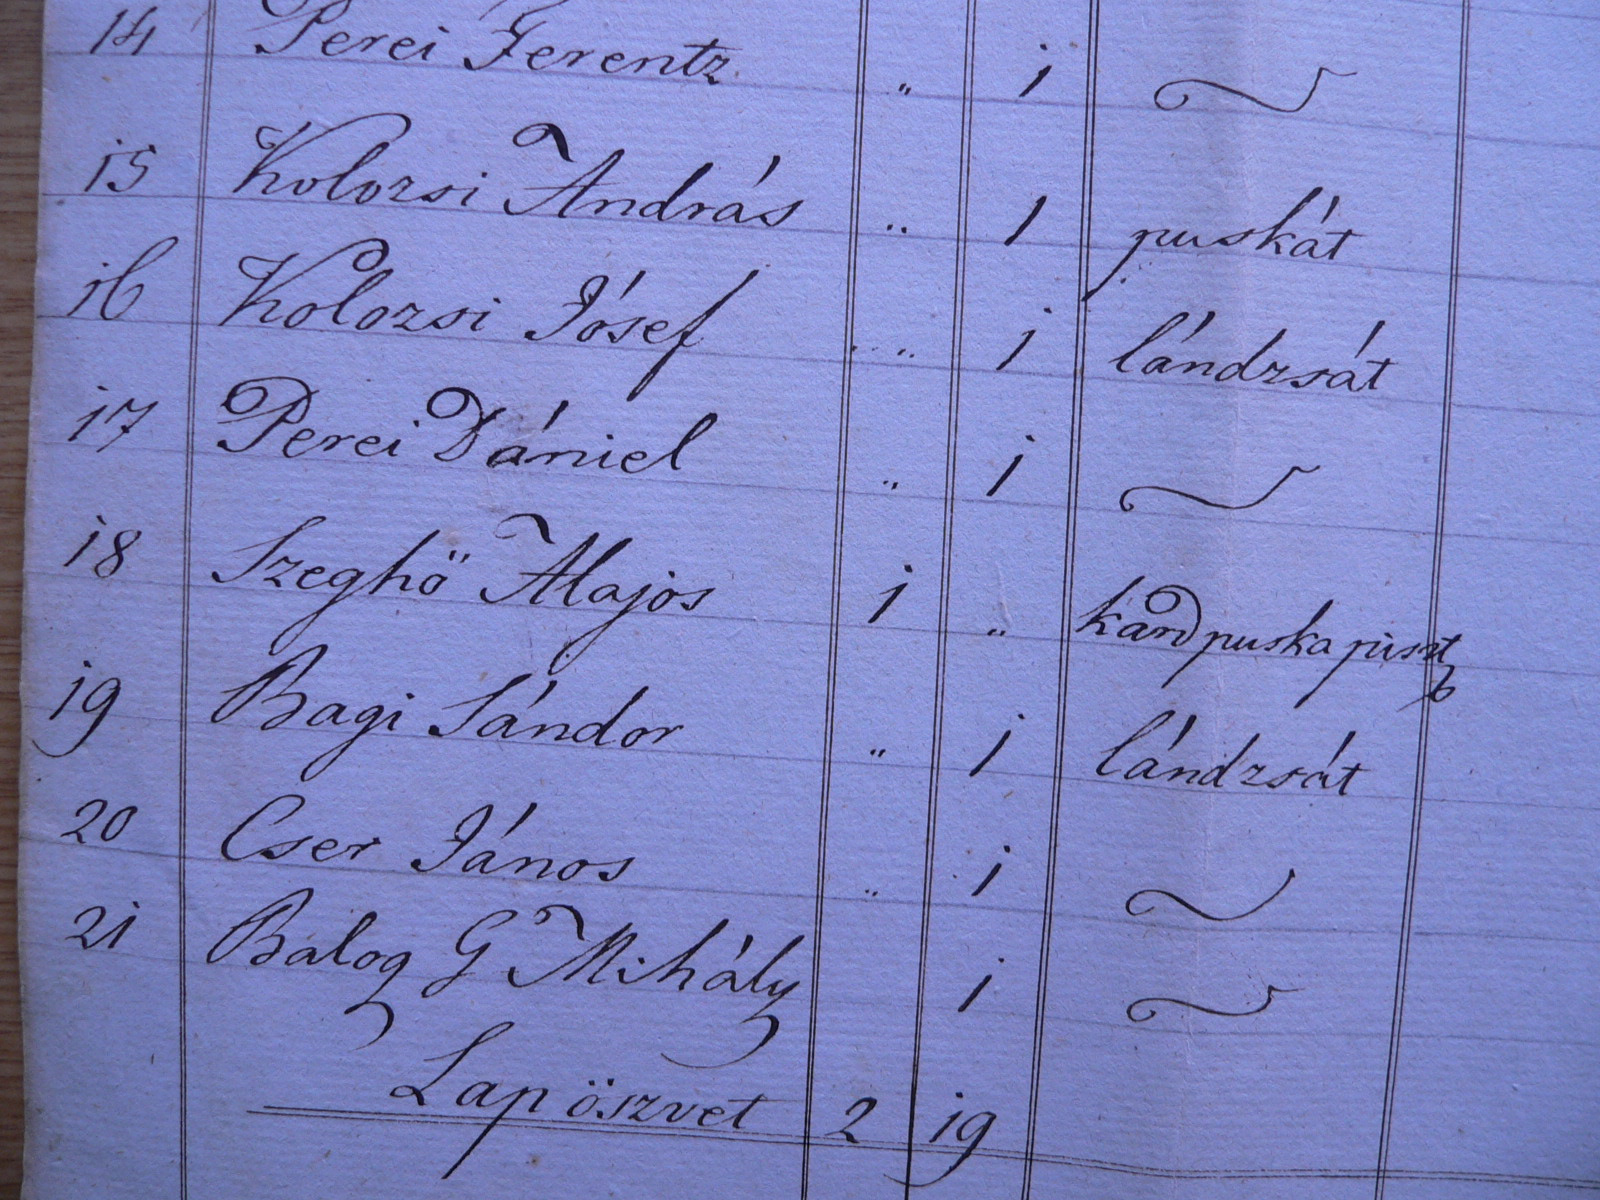 14 Perei Ferentz " 1 ~
15 Kolozsi András " 1 puskát
16 Kolozsi Jósef " 1 lándzsát
17 Perei Dániel " 1 ~
18 Szeghö Alajos 1 " kard puska piszt
19 Bagi Sándor " 1 lándzsát
20 Cser János " 1 ~
21 Balog G Mihály 1 ~
Lap öszvet 2 19